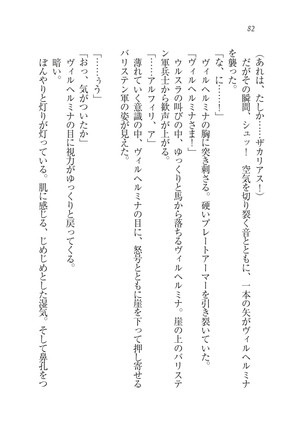 82
(あれは、たしか……ザカリアス!)
だがその瞬間、シュッ! 空気を切り裂く音とともに、一本の矢がヴィルヘルミナ
を襲った。
「な、に……!」
ヴィルヘルミナの胸に突き刺さる。硬いプレートアーマーを引き裂いていた。
「ヴィルヘルミナさま!」
ウルスラの叫びの中、ゆっくりと馬から落ちるヴィルヘルミナ。崖の上のバリステ
ン軍兵士から歓声が上がる。
「……アルフィリ、ア」
薄れていく意識の中で、ヴィルヘルミナの目に、怒号とともに崖を下って押し寄せる
バリステン軍の姿が見えた。
「……うう」
「おっ、気がついたか」
ヴィルヘルミナの目に視力がゆっくりと戻ってくる。
暗い。
ぼんやりと灯りが灯っている。肌に感じる、じめじめとした湿気。そして鼻孔をつ